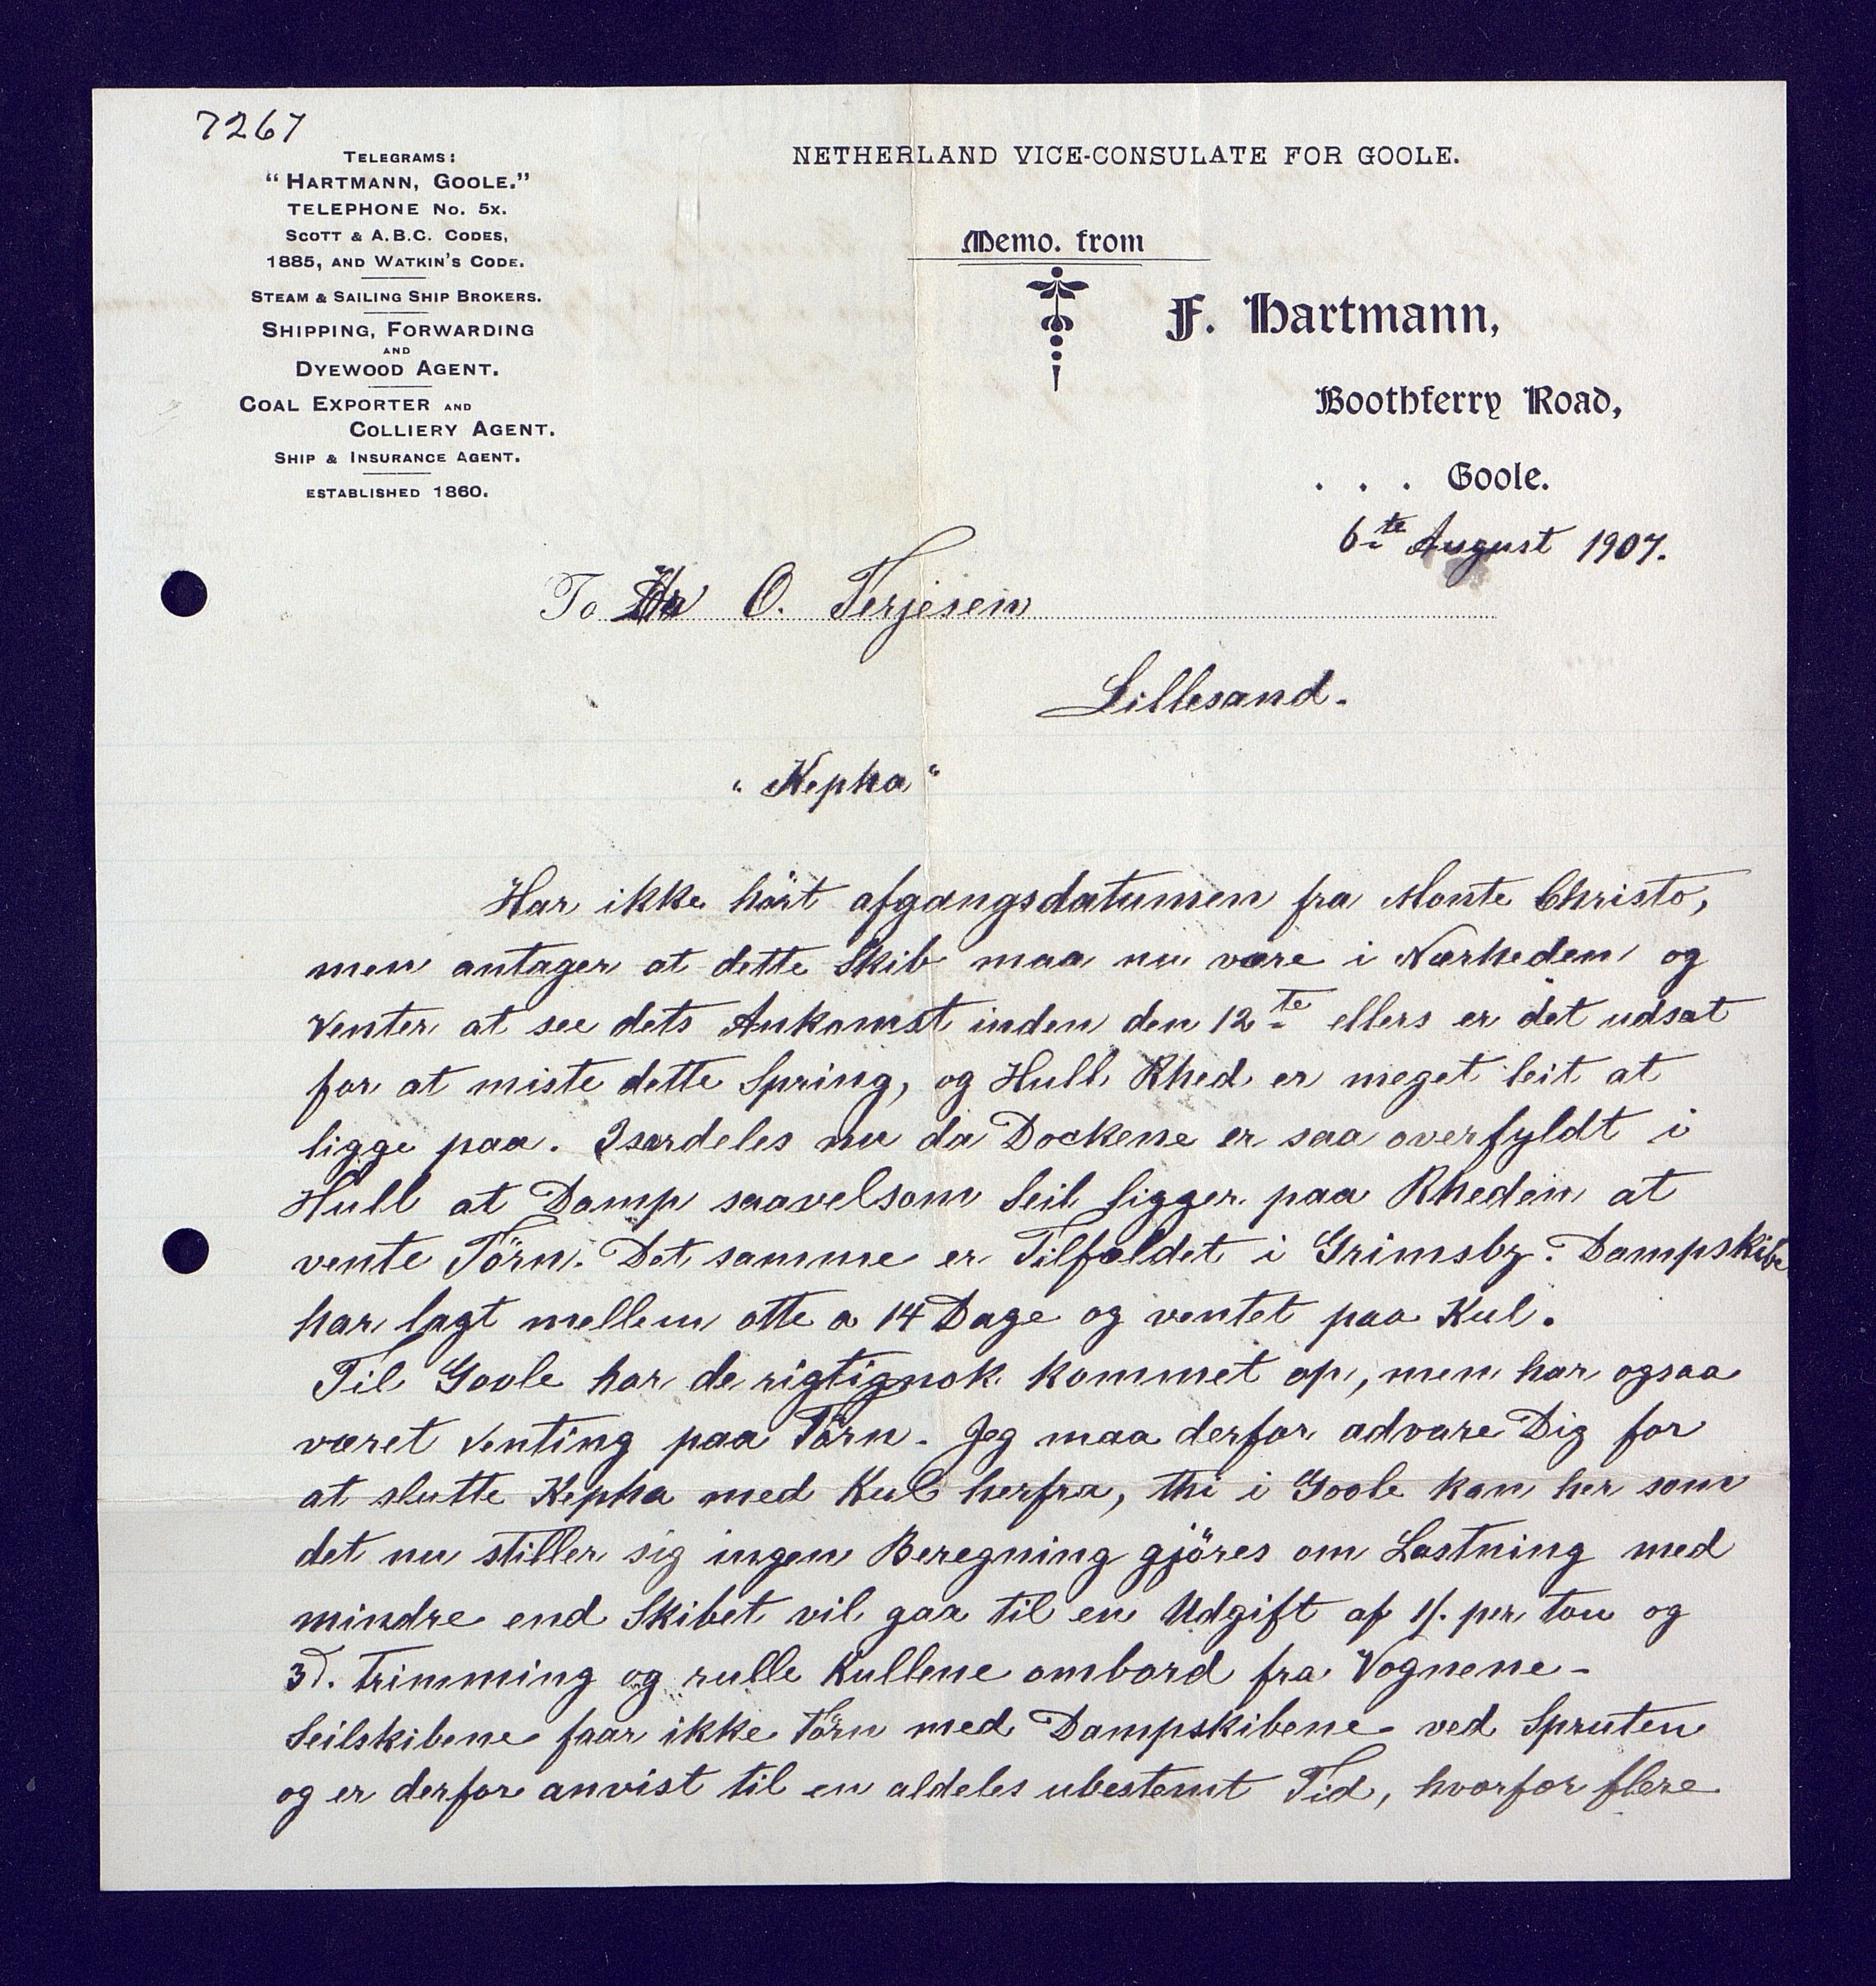 7267
TELEGRAMS:
"HARTMANN, GOOLE."
TELEPHONE No. 5x.
SCOTT & A.B.C. CODES,
1885, AND WATKIN'S CODE.
STEAM & SAILING SHIP BROKERS.
SHIPPING, FORWARDING
AND
DYEWOOD AGENT.
COAL EXPORTER AND
COLLIERY AGENT.
SHIP & INSURANCE AGENT.
ESTABLISHED 1860.
NETHERLAND VICE-CONSULATE FOR GOOLE.
Memo. from
F. Hartmann,
Boothferry Road,
. . . Goole.
6te August 1907.
To Hr O. Terjesen
Lillesand.
"Kepha"
Har ikke hört afgangsdatumen fra Monte Christo,
men antager at dette Skib maa nu være i Nærheden og
venter at see dets Ankomst inden den 12te ellers er det udsat
for at miste dette Spring, og Hull Rhed er meget leit at
ligge paa. Isærdeles nu da Dockene er saa overfyldt i
Hull at Damp saavelsom Seil ligger paa Rheden at
vente Törn. Det samme er Tilfældet i Grimsby. Dampskibe
har lagt mellem otte a 14 Dage og ventet paa Kul.
Til Goole har de rigtignok kommet op, men har ogsaa
været venting paa Törn. Jeg maa derfor advare Dig for
at slutte Kepha med Kul herfra, thi i Goole kan her som
det nu stiller sig ingen Beregning gjöres om Lastning med
mindre end Skibet vil gaa til en Udgift af 1/. per ton og
3d. Trimming og rulle Kullene ombord fra Vognene -
Seilskibene faar ikke Törn med Dampskibene ved Spruten
og er derfor anvist til en aldeles ubestemt Tid, hvorfor flere